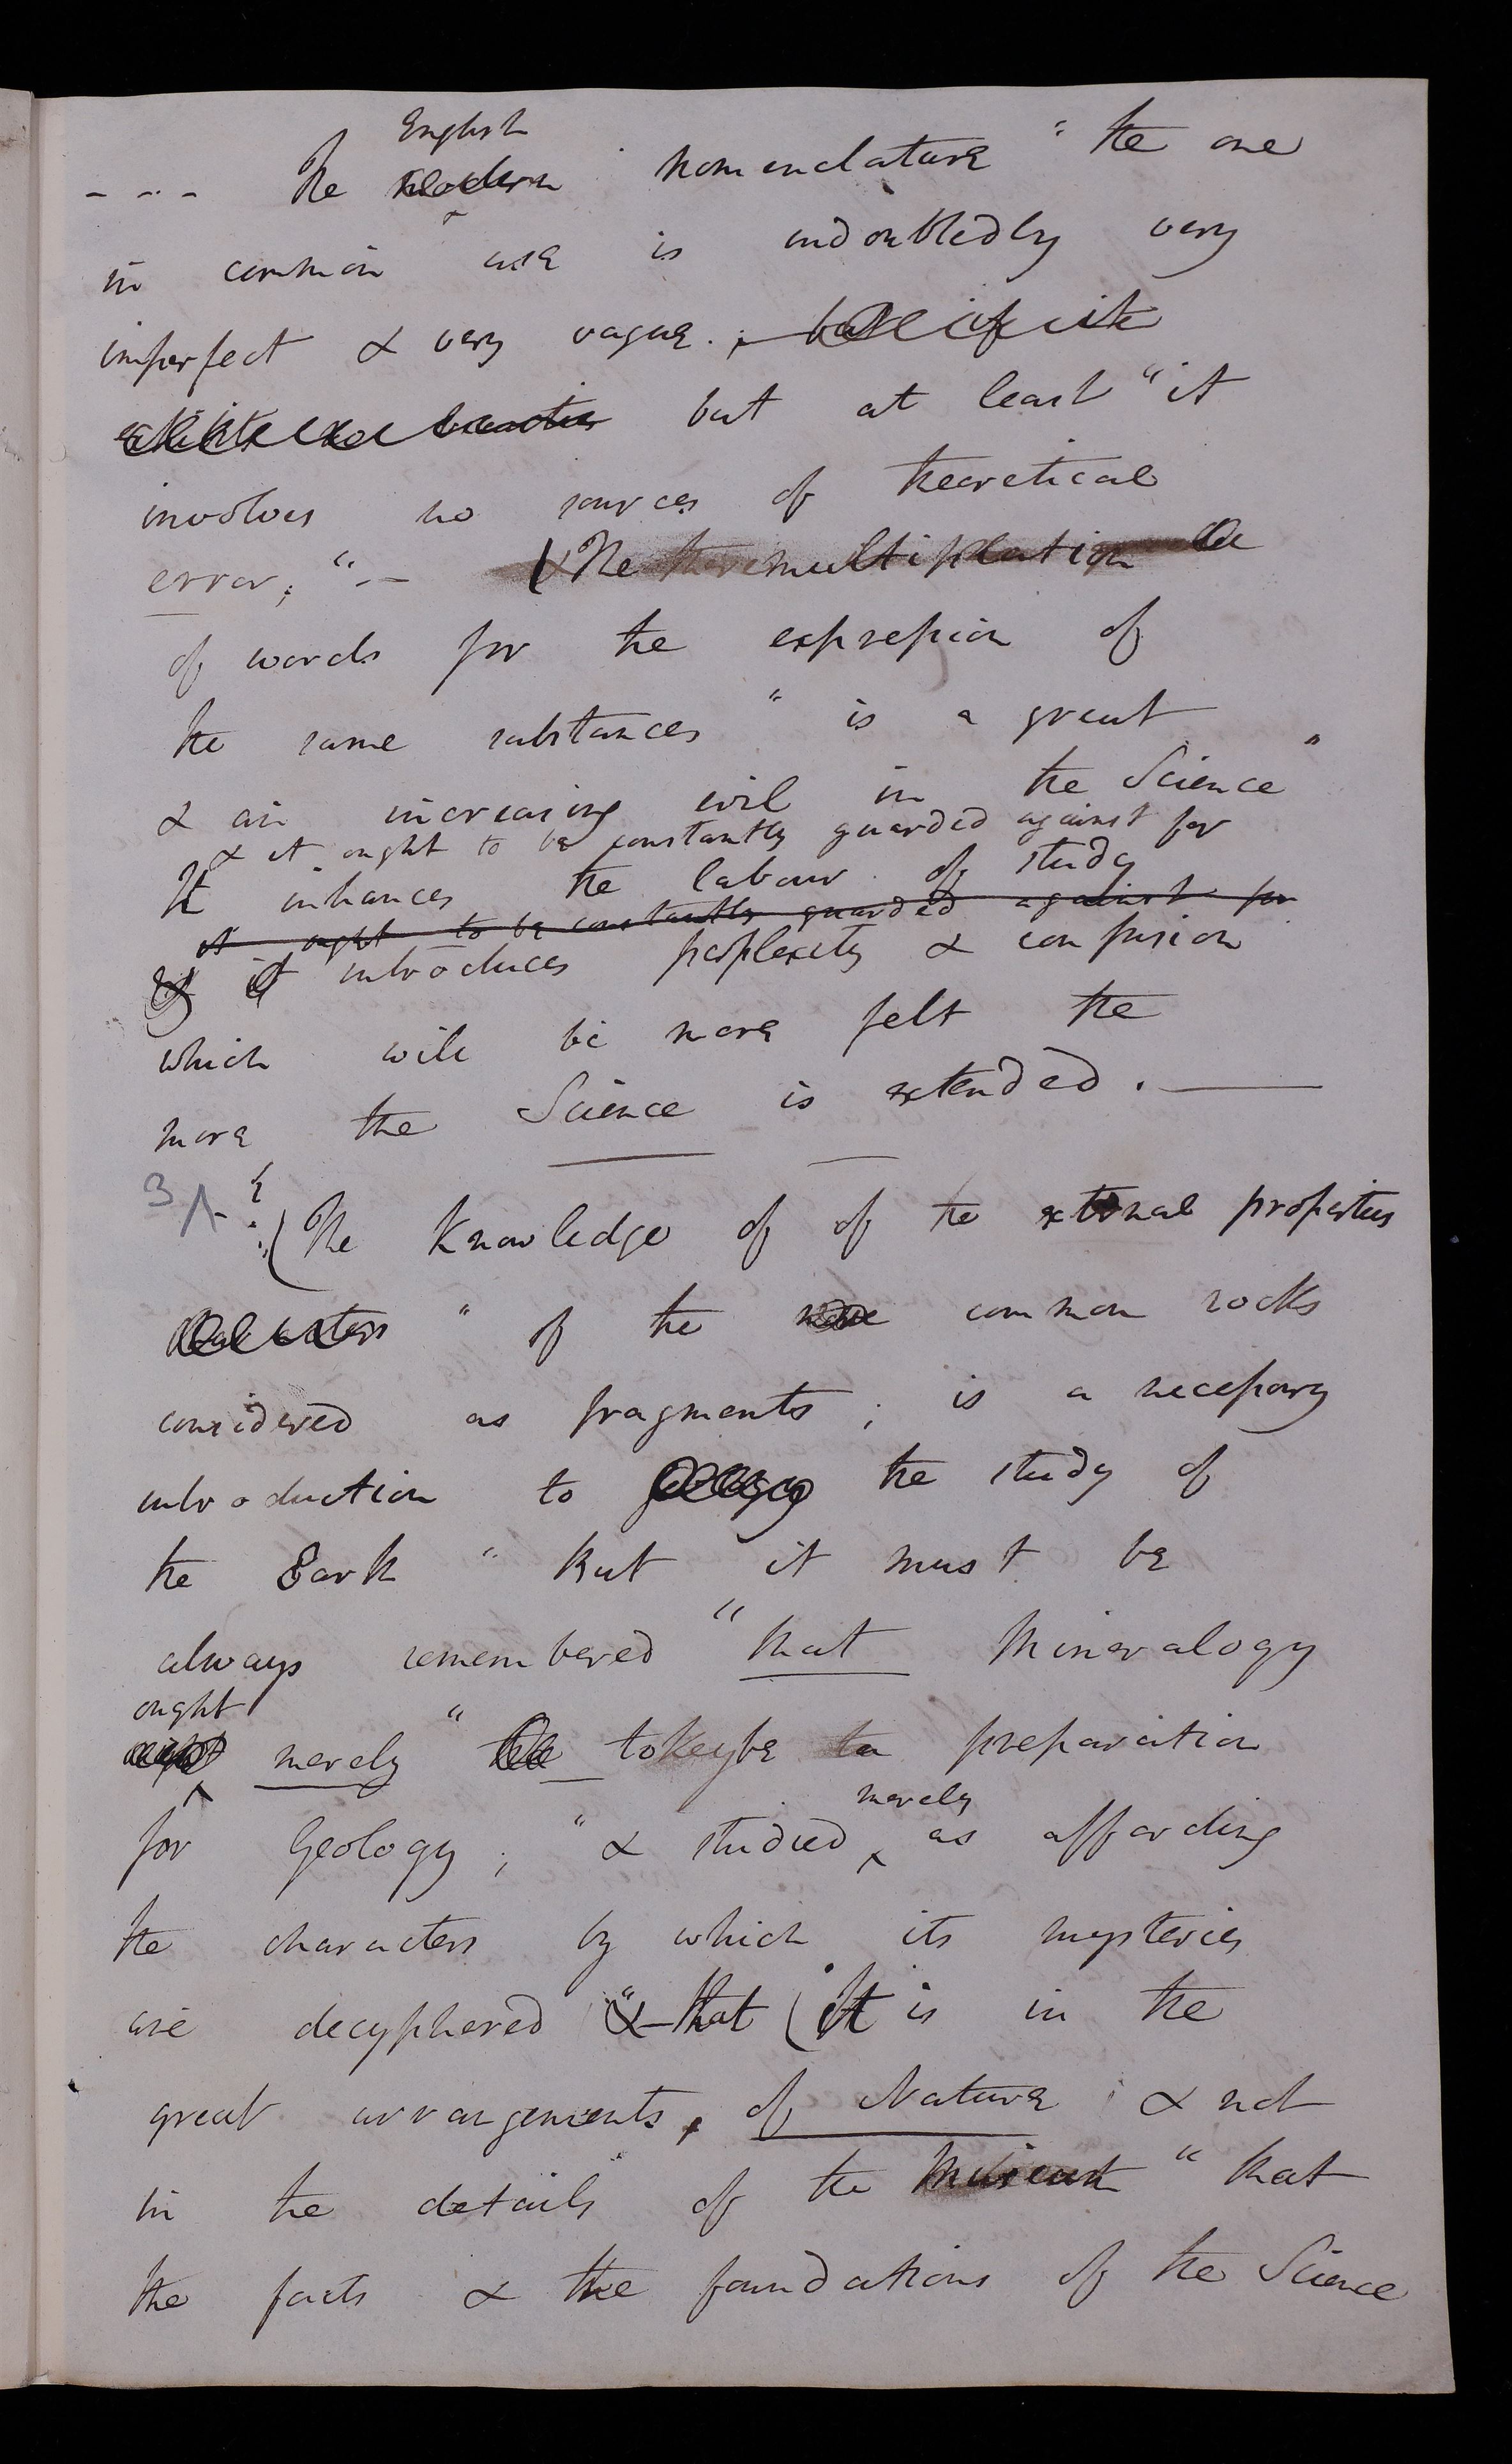 English
- - - The modern nomenclature " the one
in common use is undoubtedly very
imperfect & very vague. ; but if it
but at least " it
involves no sources of theoretical
error; " —
(The multiplication
of words for the expression of
the same substances " is a great
& an increasing evil in the Science "
& it ought to be constantly guarded against for
It inhances the labour of study
it ought to be constantly guarded against for
& it introduces perplexity & confusion
which will be more felt the
more the Science is extended. —
3
(The Knowledge of of the external properties
characters " of the more common rocks
considered as fragments; is a necessary
introduction to geology the study of
the Earth " But it must be
always remembered " that Mineralogy
ought
merely " to be a preparation
merely
for Geology; " & studied as affording
the characters by which its mysteries
are decyphered " & that (It is in the
great arrangements, of Nature & not
in the details of the Museum " that
the facts & the foundations of the Science